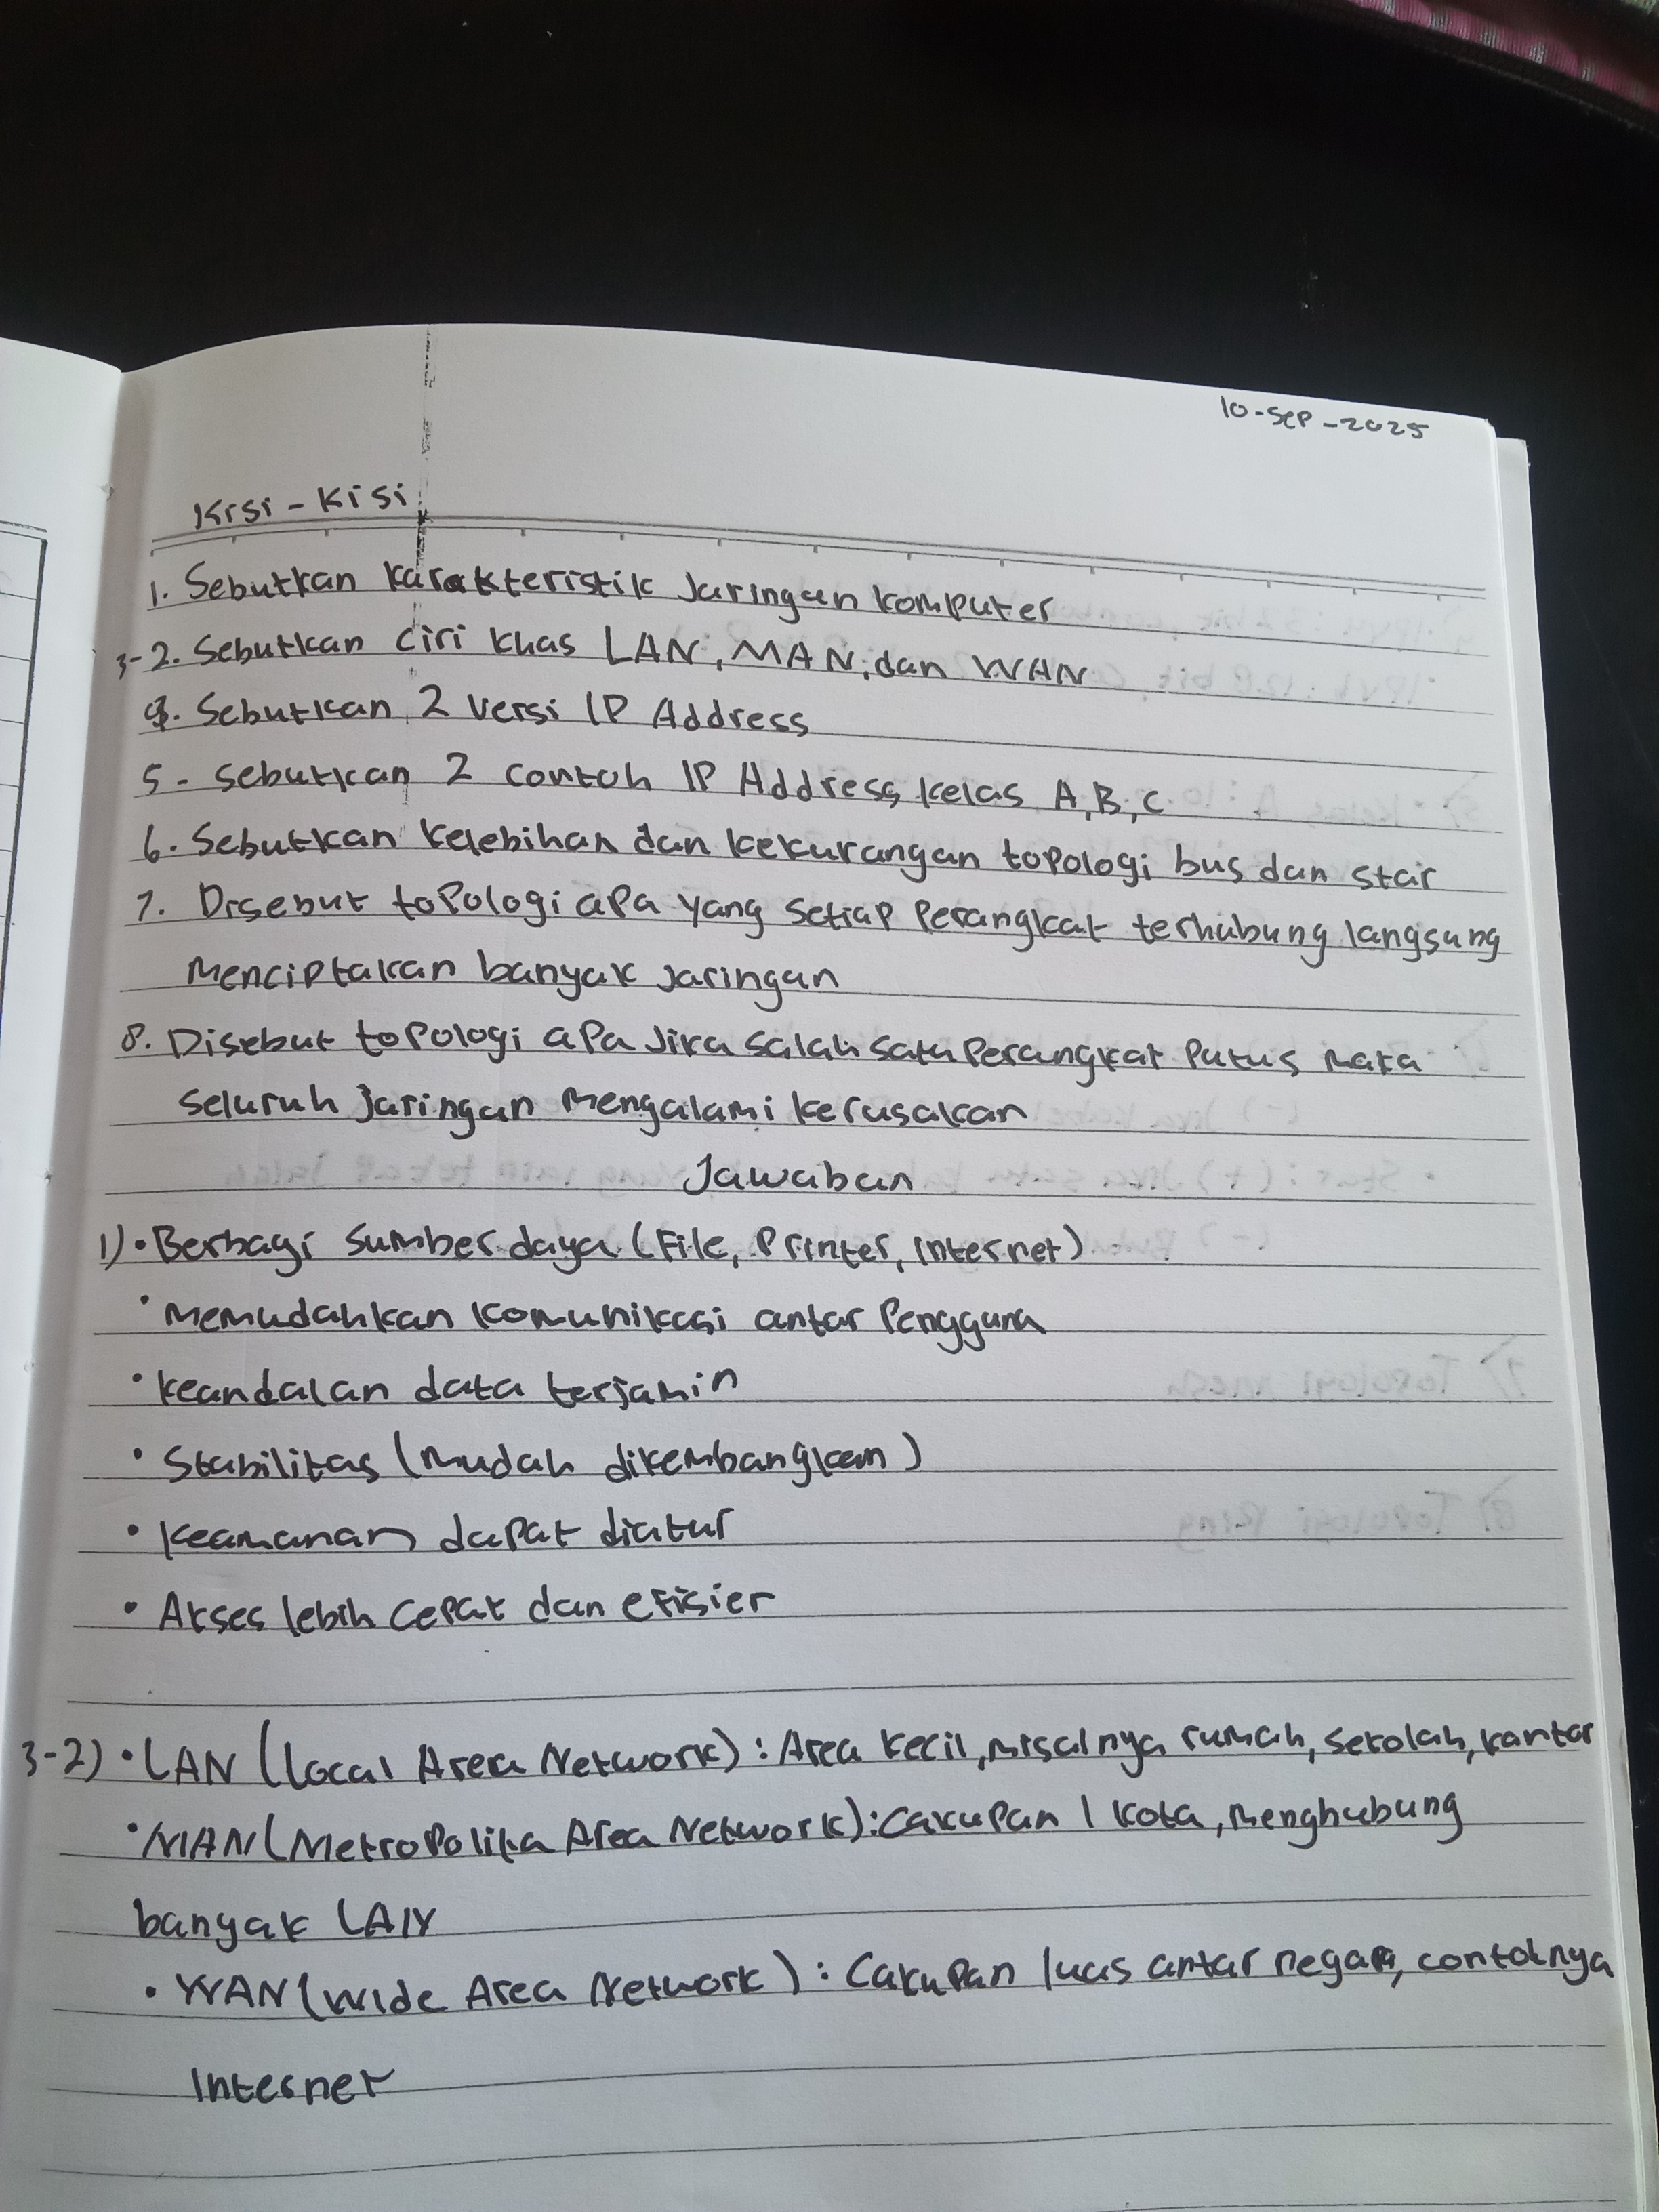 10-Sep-2025
Kisi-Kisi
1. Sebutkan karakteristik Jaringan komputer
3-2. Sebutkan ciri khas LAN, MAN, dan WAN
4. Sebutkan 2 versi IP Address
5- Sebutkan 2 contoh IP Address kelas A,B,C
6. Sebutkan kelebihan dan kekurangan topologi bus dan star
7. Disebut topologi apa yang setiap perangkat terhubung langsung
Menciptakan banyak jaringan
8. Disebut topologi apa Jika salah satu perangkat putus maka
seluruh jaringan mengalami kerusakan
Jawaban
1) • Berbagi Sumber daya (File, Printer, internet)
• Memudahkan komunikasi antar Pengguna
• keandalan data terjamin
• Stabilitas (mudah dikembangkan)
• Keamanan dapat diatur
• Akses lebih cepat dan efisier
3-2) • LAN (Local Area Network) : Area kecil, misalnya rumah, sekolah, kantor
• MAN (Metropolita Area Network) : Cakupan 1 kota, menghubung
banyak LAN
• WAN (Wide Area Network) : Cakupan luas antar negara, contohnya
Internet